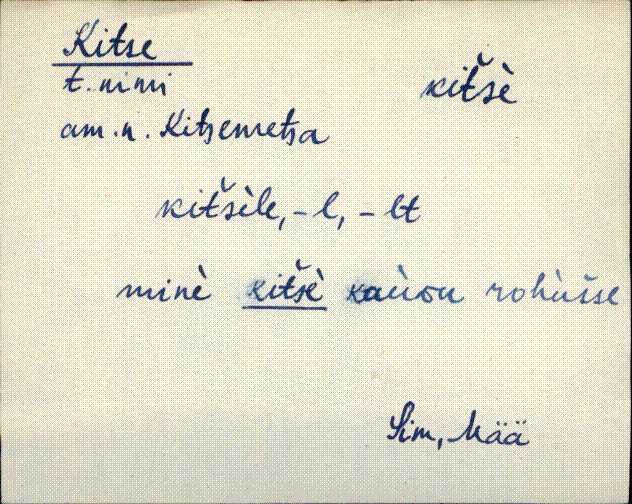 Kitse
t. nimi
kitšè
am. n. Kitsemetsa
kitšèle, -l, -lt
minè kitšè kaùou rohùšse
Sim, Mää